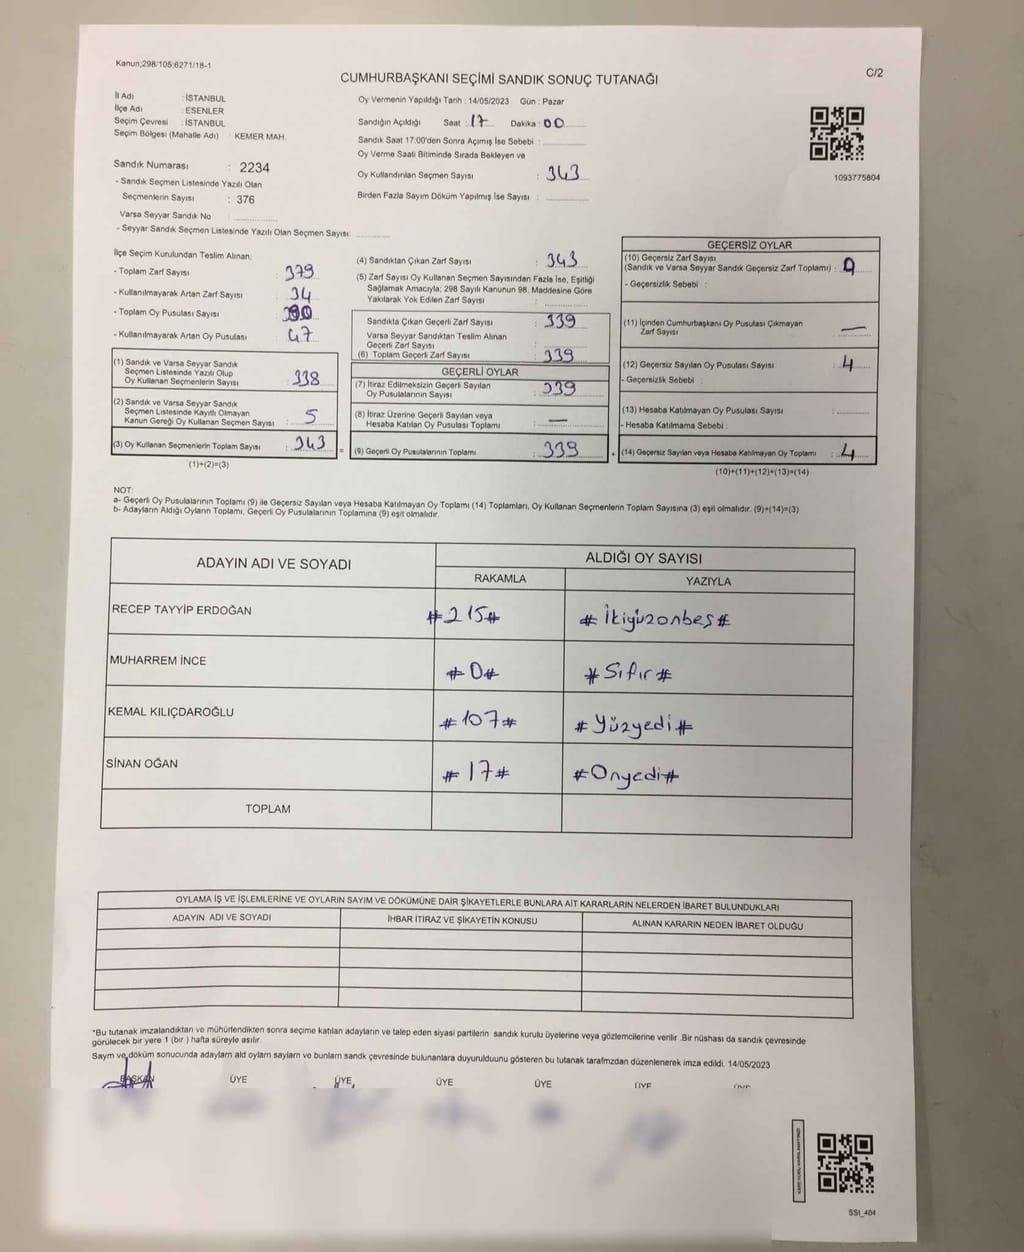 Kanun;298/105;6271/18-1
C/2
CUMHURBAŞKANI SEÇİMİ SANDIK SONUÇ TUTANAĞI
İl Adı : İSTANBUL
İlçe Adı : ESENLER
Seçim Çevresi : İSTANBUL
Seçim Bölgesi (Mahalle Adı) : KEMER MAH.
Sandık Numarası : 2234
- Sandık Seçmen Listesinde Yazılı Olan
Seçmenlerin Sayısı : 376
Varsa Seyyar Sandık No :
- Seyyar Sandık Seçmen Listesinde Yazılı Olan Seçmen Sayısı:
Oy Vermenin Yapıldığı Tarih : 14/05/2023 Gün : Pazar
Sandığın Açıldığı Saat : 17 Dakika : 00
Sandık Saat 17:00'den Sonra Açımış İse Sebebi :
Oy Verme Saati Bitiminde Sırada Bekleyen ve
Oy Kullandırılan Seçmen Sayısı : 343
Birden Fazla Sayım Döküm Yapılmış İse Sayısı :
1093775804
İlçe Seçim Kurulundan Teslim Alınan;
- Toplam Zarf Sayısı : 379
- Kullanılmayarak Artan Zarf Sayısı : 34
- Toplam Oy Pusulası Sayısı :
- Kullanılmayarak Artan Oy Pusulası : 47
(1) Sandık ve Varsa Seyyar Sandık
Seçmen Listesinde Yazılı Olup
Oy Kullanan Seçmenlerin Sayısı : 338
(2) Sandık ve Varsa Seyyar Sandık
Seçmen Listesinde Kayıtlı Olmayan
Kanun Gereği Oy Kullanan Seçmen Sayısı : 5
(3) Oy Kullanan Seçmenlerin Toplam Sayısı : 343
(1)+(2)=(3)
(4) Sandıktan Çıkan Zarf Sayısı : 343
(5) Zarf Sayısı Oy Kullanan Seçmen Sayısından Fazla İse, Eşitliği
Sağlamak Amacıyla; 298 Sayılı Kanunun 98. Maddesine Göre
Yakılarak Yok Edilen Zarf Sayısı :
Sandıkta Çıkan Geçerli Zarf Sayısı : 339
Varsa Seyyar Sandıktan Teslim Alınan
Geçerli Zarf Sayısı :
(6) Toplam Geçerli Zarf Sayısı : 339
GEÇERLİ OYLAR
(7) İtiraz Edilmeksizin Geçerli Sayılan
Oy Pusulalarının Sayısı : 339
(8) İtiraz Üzerine Geçerli Sayılan veya
Hesaba Katılan Oy Pusulası Toplamı : —
= (9) Geçerli Oy Pusulalarının Toplamı : 339
GEÇERSİZ OYLAR
(10) Geçersiz Zarf Sayısı
(Sandık ve Varsa Seyyar Sandık Geçersiz Zarf Toplamı) : 0
- Geçersizlik Sebebi :
(11) İçinden Cumhurbaşkanı Oy Pusulası Çıkmayan
Zarf Sayısı : —
(12) Geçersiz Sayılan Oy Pusulası Sayısı : 4
- Geçersizlik Sebebi :
(13) Hesaba Katılmayan Oy Pusulası Sayısı :
- Hesaba Katılmama Sebebi :
+ (14) Geçersiz Sayılan veya Hesaba Katılmayan Oy Toplamı : 4
(10)+(11)+(12)+(13)=(14)
NOT:
a- Geçerli Oy Pusulalarının Toplamı (9) ile Geçersiz Sayılan veya Hesaba Katılmayan Oy Toplamı (14) Toplamları, Oy Kullanan Seçmenlerin Toplam Sayısına (3) eşit olmalıdır. (9)+(14)=(3)
b- Adayların Aldığı Oyların Toplamı, Geçerli Oy Pusulalarının Toplamına (9) eşit olmalıdır.
ADAYIN ADI VE SOYADI ALDIĞI OY SAYISI
RAKAMLA YAZIYLA
RECEP TAYYİP ERDOĞAN #215# #İkiyüzonbeş#
MUHARREM İNCE #0# #Sıfır#
KEMAL KILIÇDAROĞLU #107# #Yüzyedi#
SİNAN OĞAN #17# #Onyedi#
TOPLAM
OYLAMA İŞ VE İŞLEMLERİNE VE OYLARIN SAYIM VE DÖKÜMÜNE DAİR ŞİKAYETLERLE BUNLARA AİT KARARLARIN NELERDEN İBARET BULUNDUKLARI
ADAYIN ADI VE SOYADI İHBAR İTİRAZ VE ŞİKAYETİN KONUSU ALINAN KARARIN NEDEN İBARET OLDUĞU
*Bu tutanak imzalandıktan ve mühürlendikten sonra seçime katılan adayların ve talep eden siyasi partilerin sandık kurulu üyelerine veya gözlemcilerine verilir .Bir nüshası da sandık çevresinde
görülecek bir yere 1 (bir ) hafta süreyle asılır.
Sayım ve döküm sonucunda adaylarn ald oylarn saylarn ve bunlarn sandk çevresinde bulunanlara duyurulduunu gösteren bu tutanak tarafmzdan düzenlenerek imza edildi. 14/05/2023
BAŞKAN ÜYE ÜYE ÜYE ÜYE ÜYE ÜYE
SSI_404